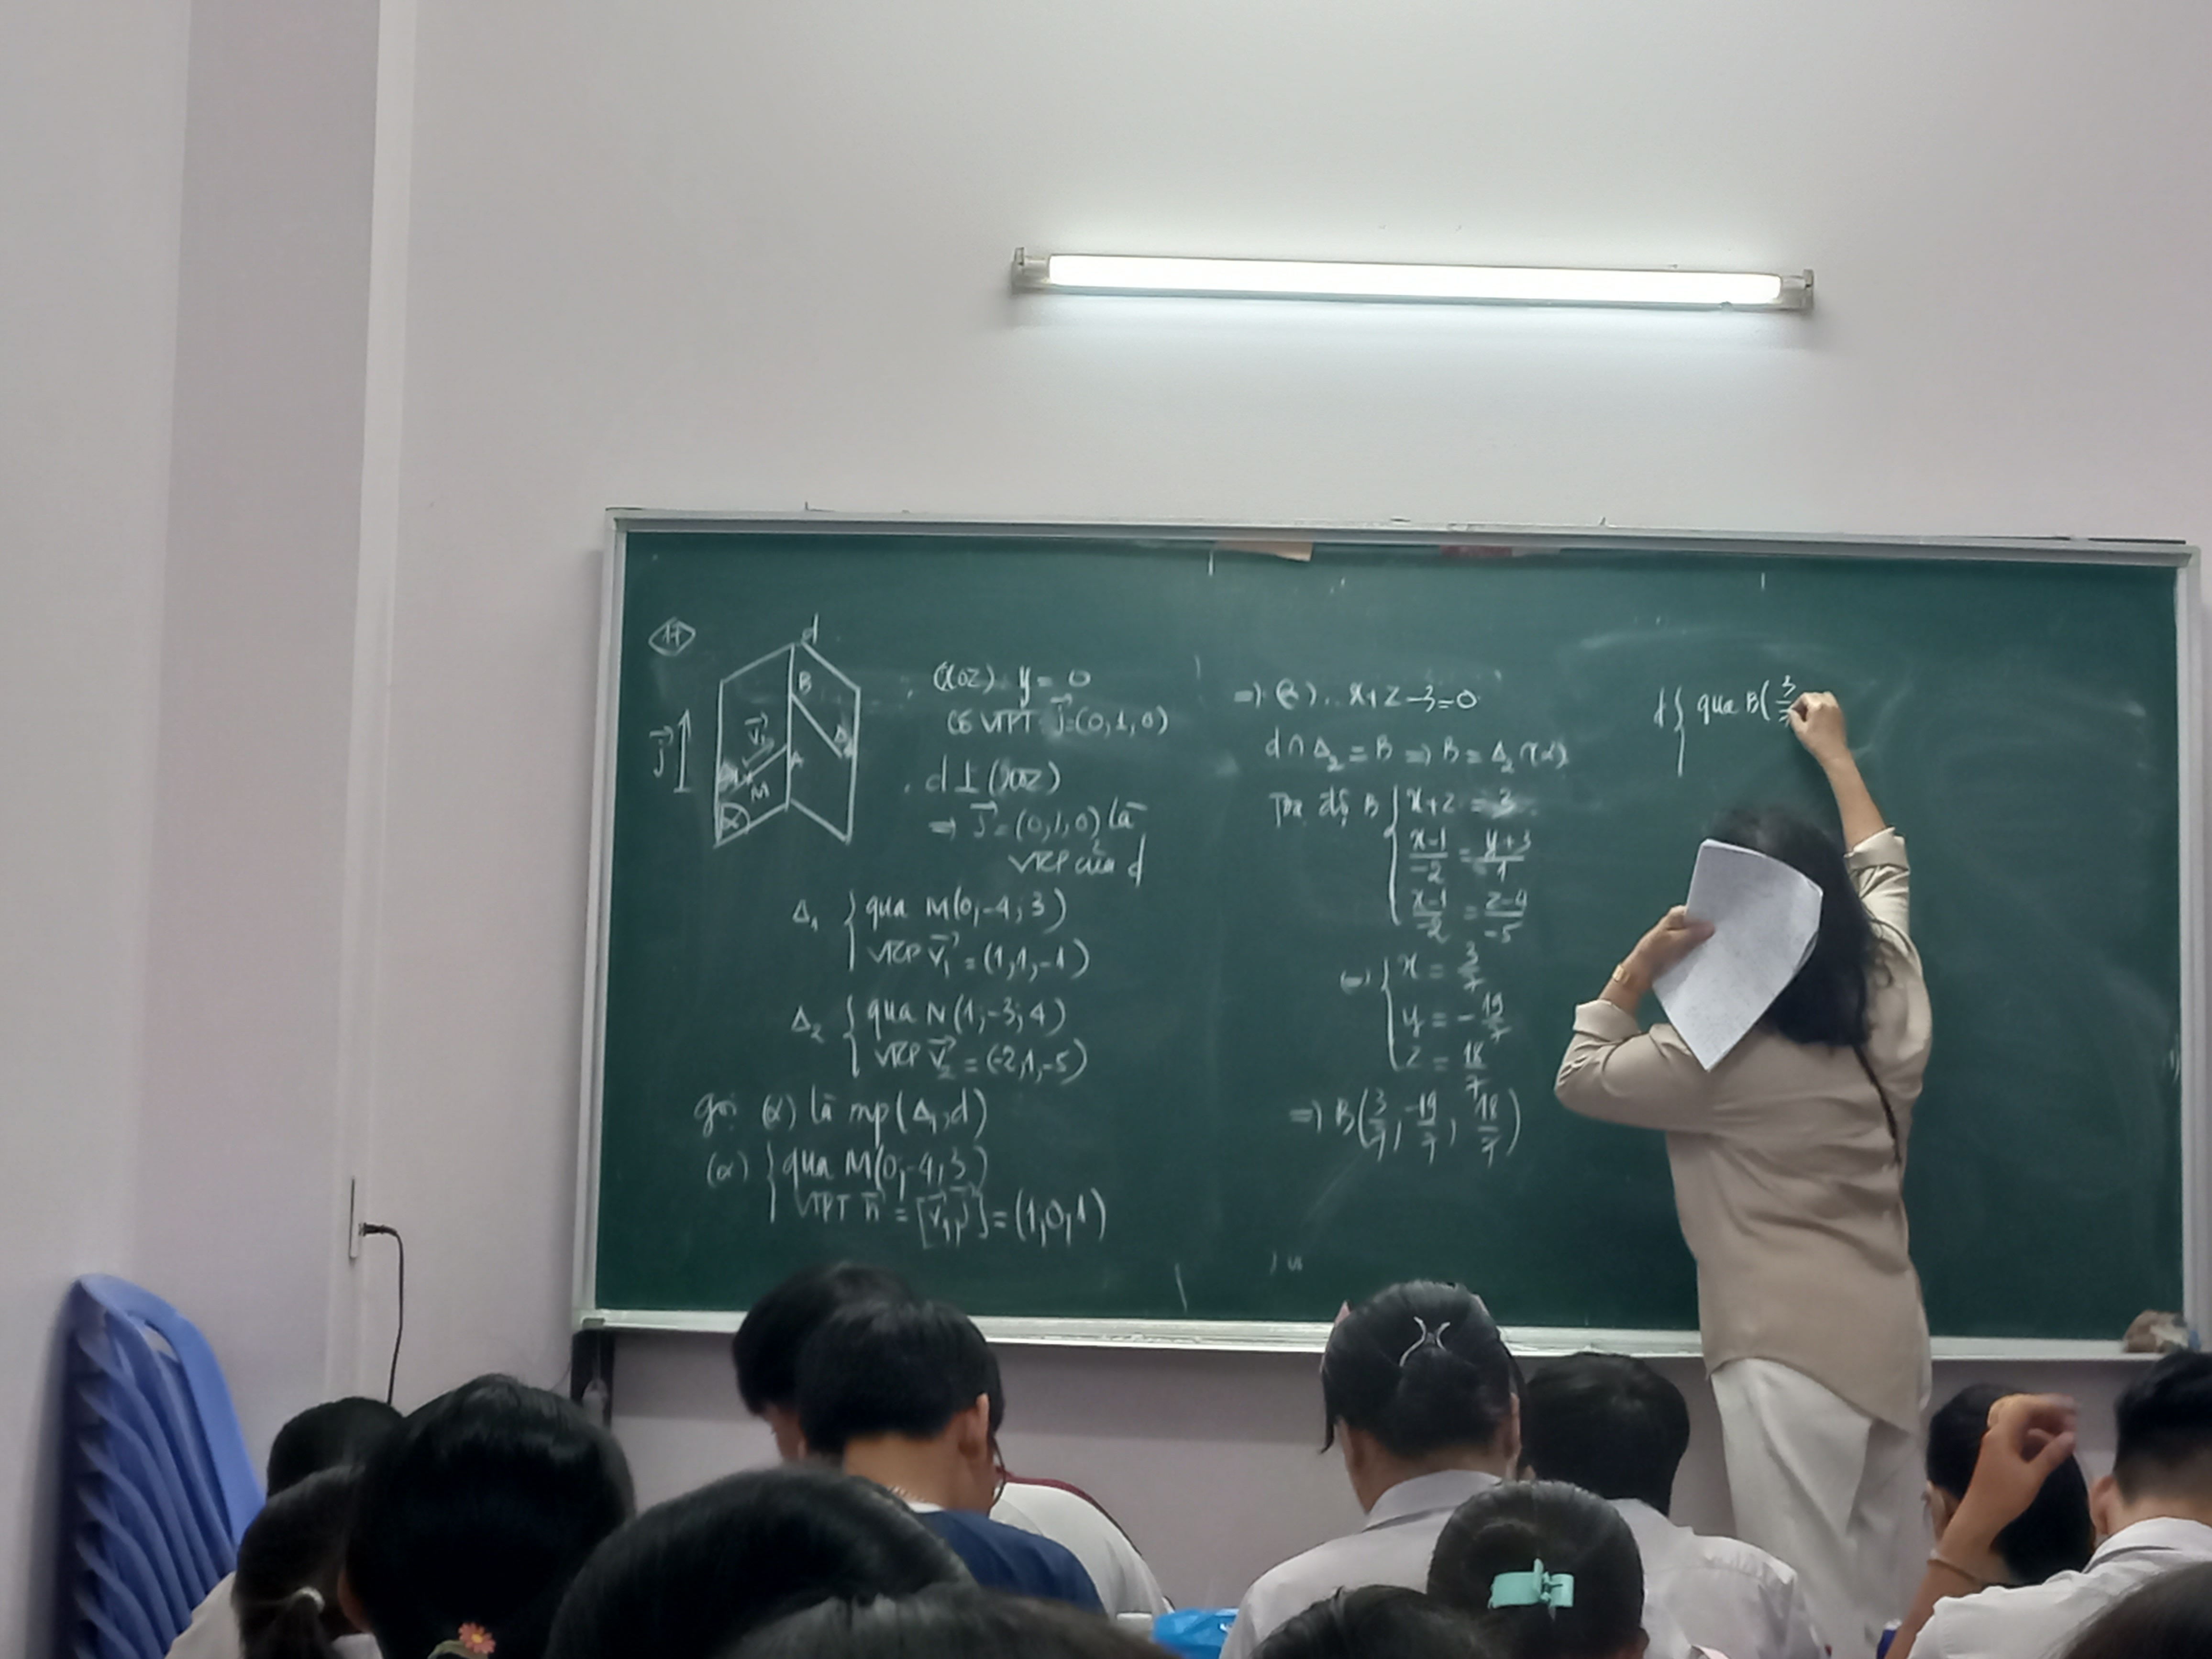 17
d
B
j⃗
v⃗₁
Δ₂
A
Δ₁
M
α
(xOz): y = 0
Có VTPT j⃗ = (0,1,0)
d ⊥ (xOz)
⇒ j⃗ = (0,1,0) là
VTCP của d
Δ₁ { qua M(0;-4;3)
VTCP v⃗₁ = (1,1,-1)
Δ₂ { qua N(1;-3;4)
VTCP v⃗₂ = (-2,1,-5)
gọi (α) là mp(Δ₁,d)
(α) { qua M(0;-4;3)
VTPT n⃗ = [v⃗₁,j⃗] = (1,0,1)
⇒ (α): x+z-3=0
d ∩ Δ₂ = B ⇒ B = Δ₂ ∩ (α)
Tọa độ B { x+z = 3
(x-1)/-2 = (y+3)/1
(x-1)/-2 = (z-4)/-5
⇔ { x = 3/7
y = -19/7
z = 18/7
⇒ B(3/7, -19/7, 18/7)
d { qua B(3/7